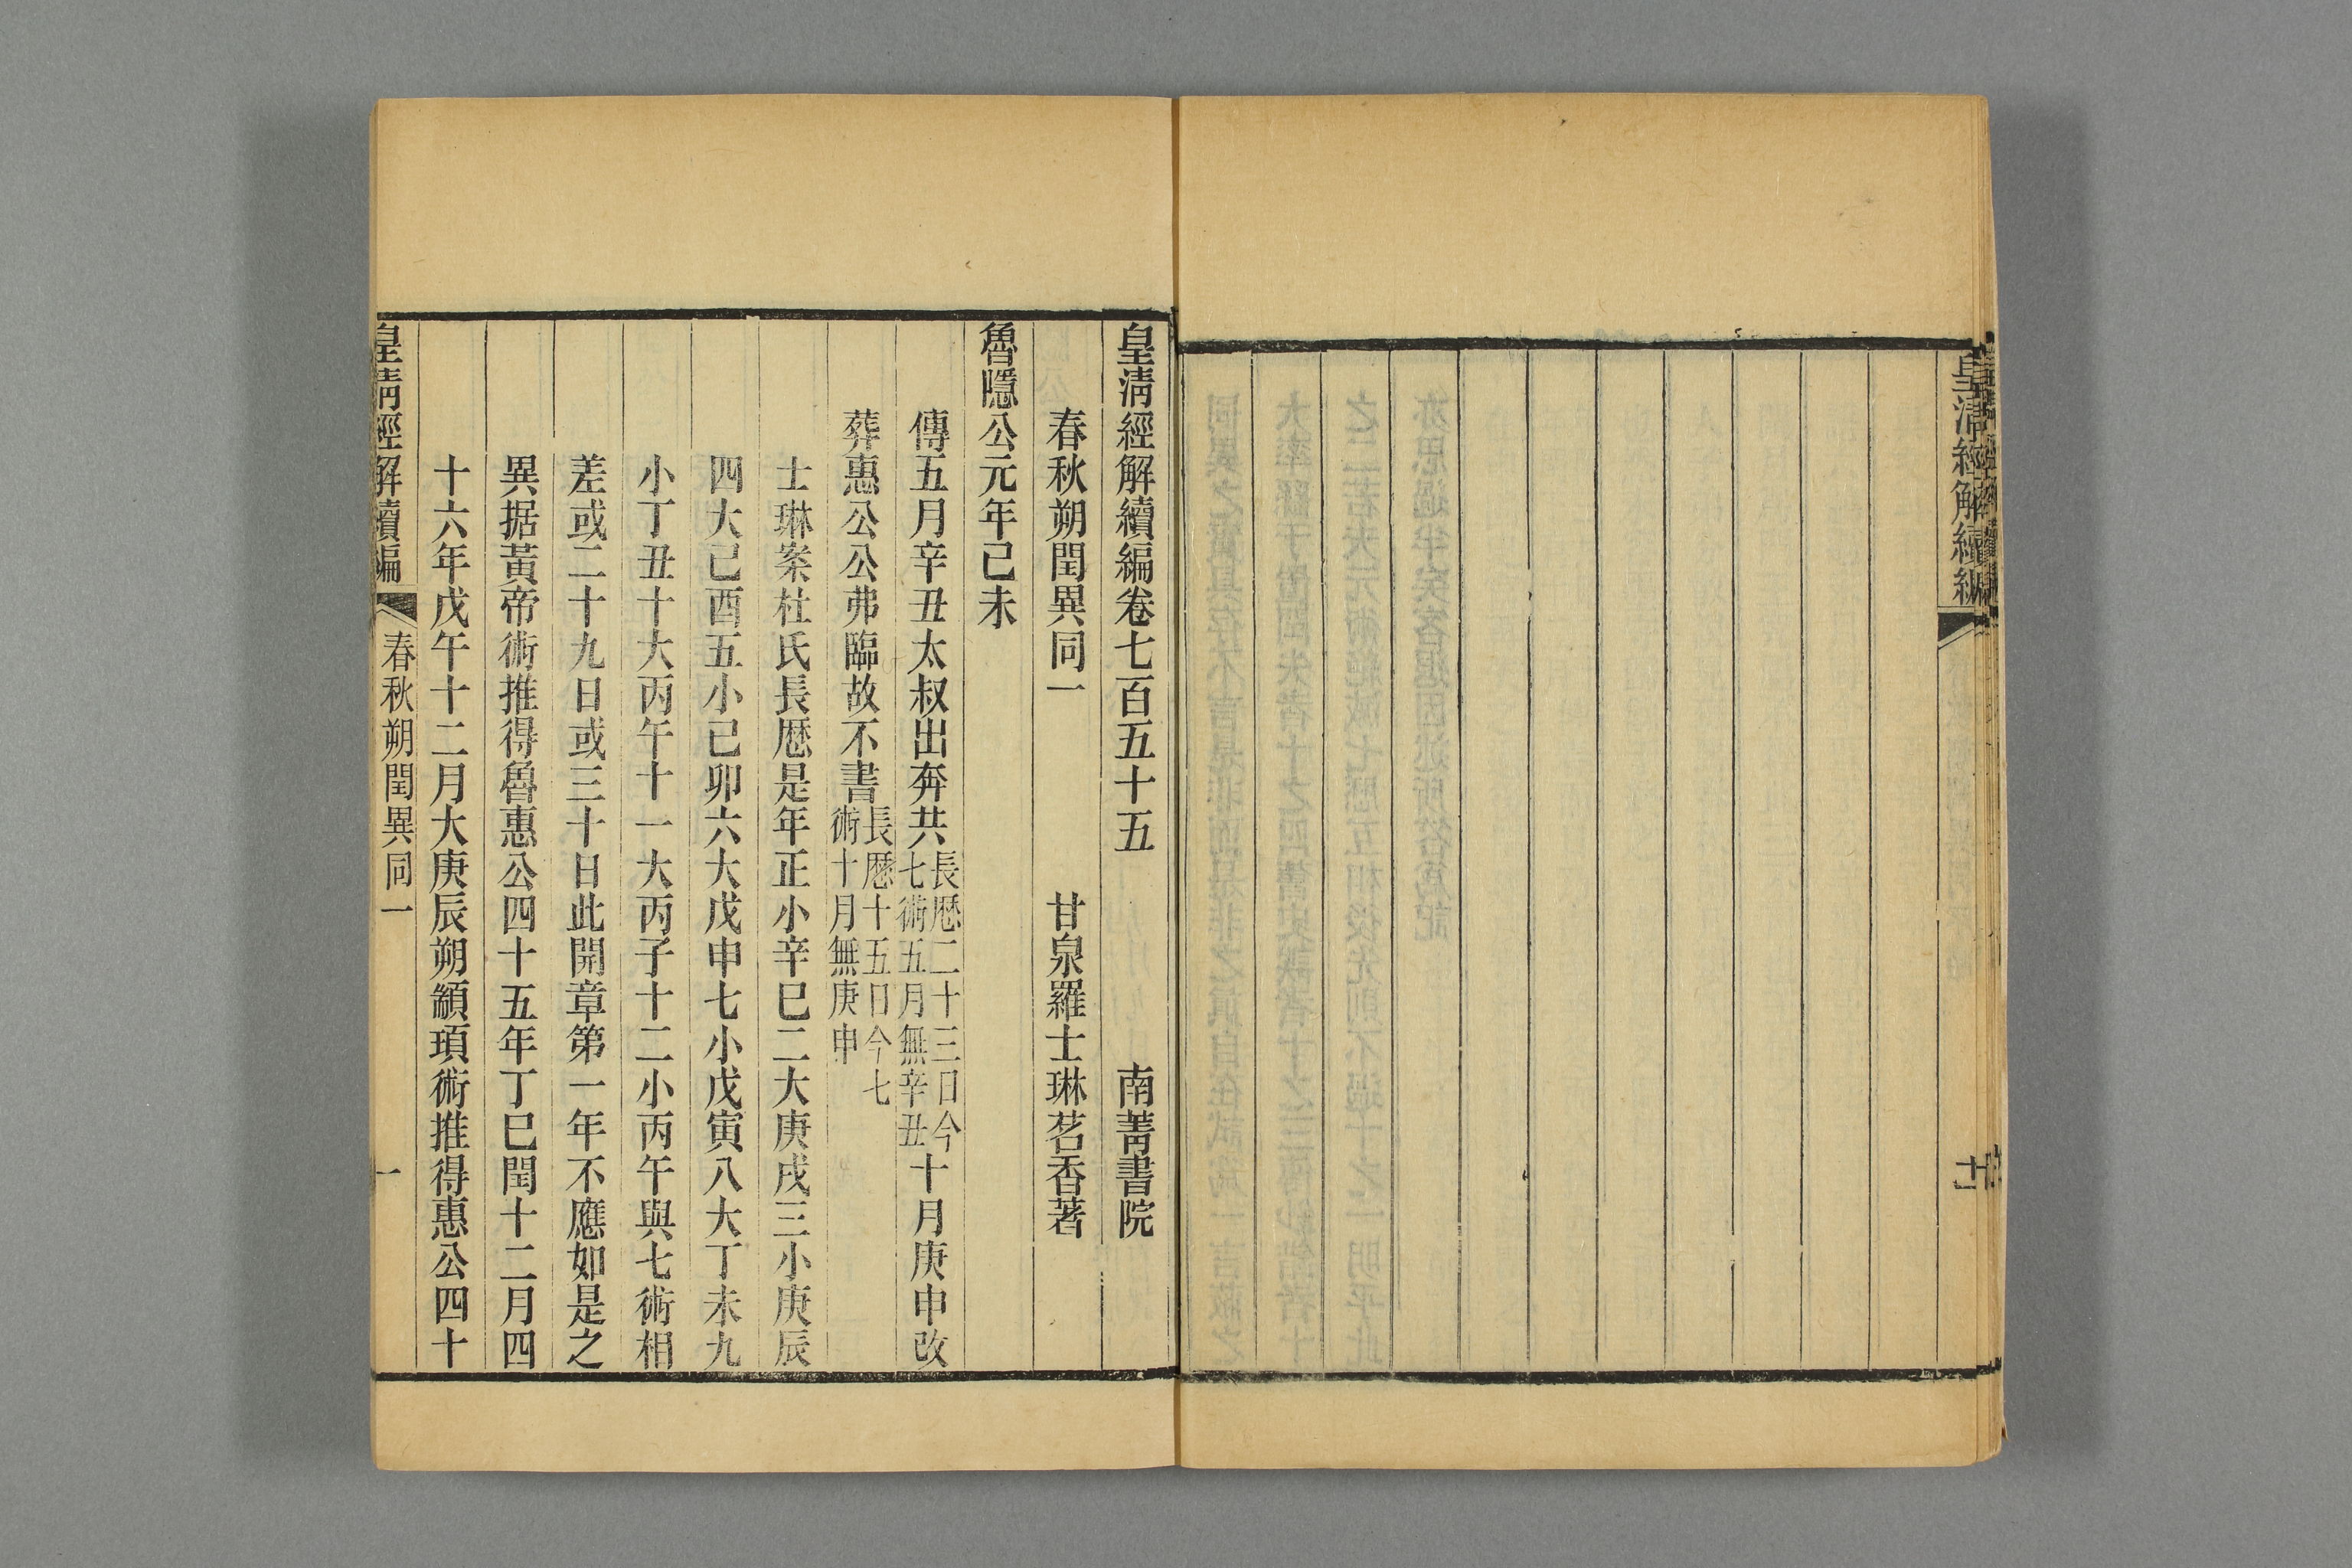 皇清經解續編
十七
皇清經解續編卷七百五十五 南菁書院
春秋朔閏異同一 甘泉羅士琳茗香著
魯隱公元年己未
傳五月辛丑太叔出奔共長厯二十三日今七術五月無辛丑十月庚申改
葬惠公公弗臨故不書長厯十五日今七術十月無庚申
士琳案杜氏長厯是年正小辛巳二大庚戌三小庚辰
四大己酉五小己卯六大戊申七小戊寅八大丁未九
小丁丑十大丙午十一大丙子十二小丙午與七術相
差或二十九日或三十日此開章第一年不應如是之
異据黃帝術推得魯惠公四十五年丁巳閏十二月四
十六年戊午十二月大庚辰朔顓頊術推得惠公四十
皇清經解續編 春秋朔閏異同一 一